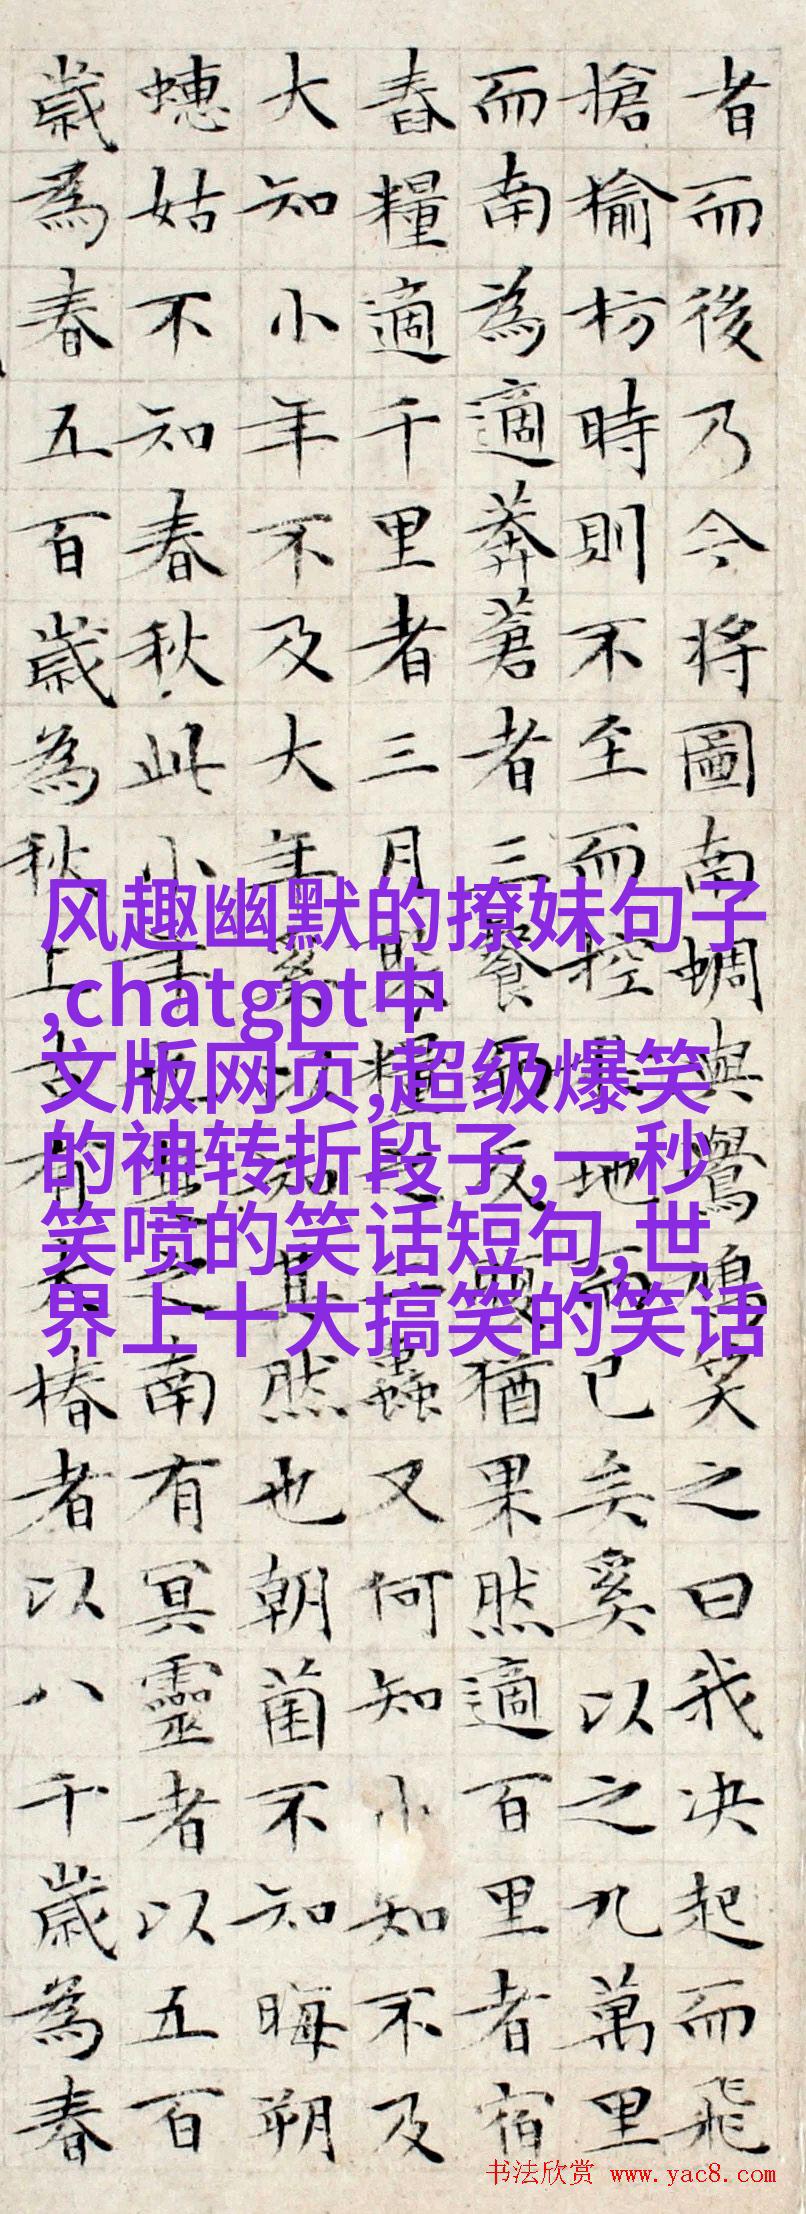 者而後乃今将圖南蜩與鷽鳩笑之曰我决起而飛
搶榆枋時則不至而控於地而已矣奚以之九萬里
而南為適莽蒼者三餐而反腹猶果然適百里者宿
舂糧適千里者三月聚糧之二蟲又何知小知不及
大知小年不及大年奚以知其然也朝菌不知晦朔
蟪姑不知春秋此小年也楚之南有冥靈者以五百
歲為春五百歲為秋上古有大椿者以八千歲為春
风趣幽默的撩妹句子
,chatgpt中
文版网页,超级爆笑
的神转折段子,一秒
笑喷的笑话短句,世
界上十大搞笑的笑话
书法欣赏 www.yac8.com